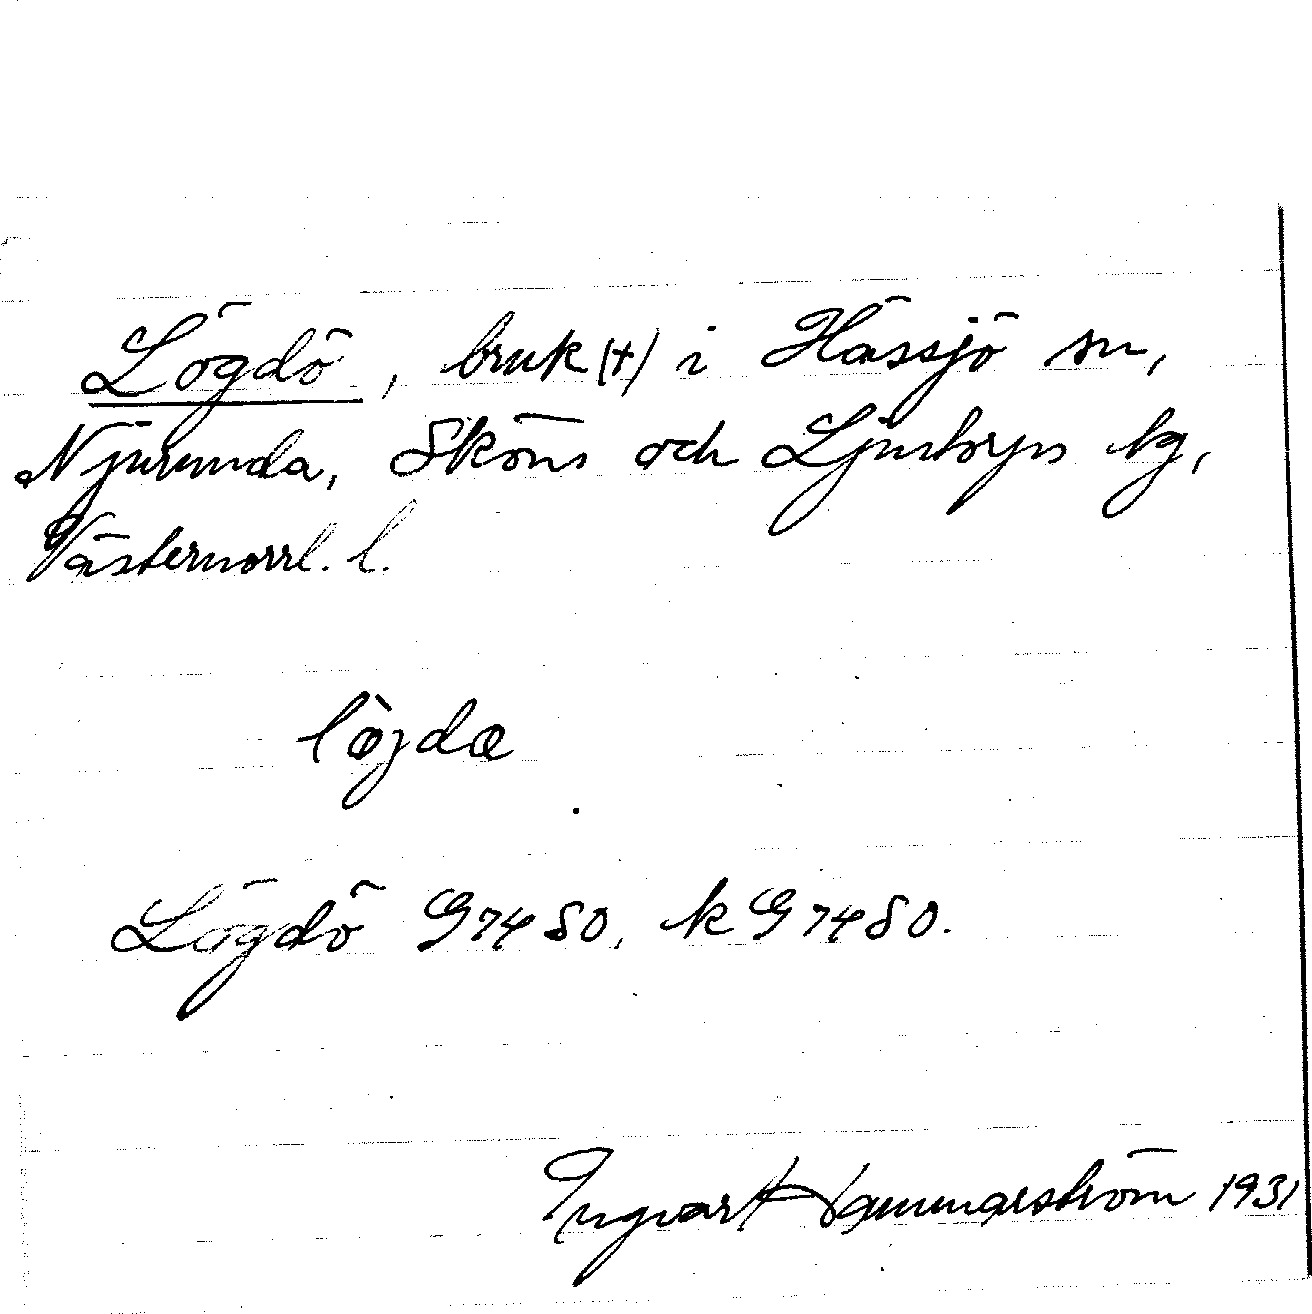 Lögdö, bruk (+) i Hässjö sn,
Njurunda, Sköns och Ljustorps tg,
Västernorrl. l.
lø̀jdæ
Lögdö G7480, k G7480.
Ingvar Hammarström 1931